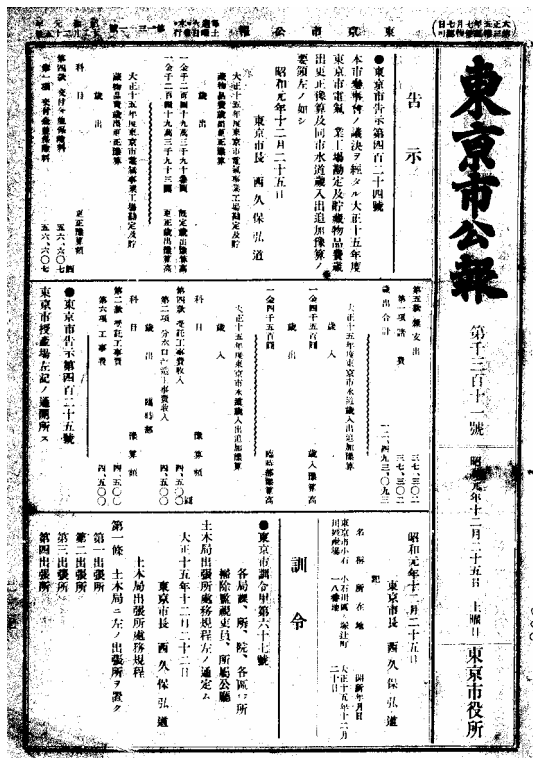 東京市公報
東京市公報
第千三百十一號
昭和元年十二月二十五日
土曜日
東京市役所
告示
●東京市告示第四百二十四號
本市參事會ノ議決ヲ經タル大正十五年度
東京市電氣事業工場勘定及貯藏物品費歲
出更正豫算及同市水道歲入出追加豫算ノ
要領左ノ如シ
昭和元年十二月二十五日
東京市長 西久保弘道
大正十五年度東京市電氣事業工場勘定及貯
藏物品費歲出更正豫算
歲出
一金千二百四十九萬三千九十三圓 既定歲出豫算高
一金千二百四十九萬三千九十三圓 更正歲出豫算高
大正十五年度東京市電氣事業工場勘定及貯
藏物品費歲出更正豫算
歲出
科目 更正豫算額
第四款 交付金及保險料 五六、六〇七
第一項 交付金及保險料 五六、六〇七
第五款 雜支出 三七、三〇二
第一項 諸費 三七、三〇二
歲出合計 一二、四九三、〇九三
大正十五年度東京市水道歲入出追加豫算
歲入
一金四千五百圓 歲入豫算高
歲出
一金四千五百圓 臨時部豫算高
大正十五年度東京市水道歲入出追加豫算
歲入
科目 豫算額
第四款 受託工事費收入 四、五〇〇圓
第二項 分水口止造工事費收入 四、五〇〇
歲出 臨時部
科目 豫算額
第二款 受託工事費 四、五〇〇
第六項 工事費 四、五〇〇
●東京市告示第四百二十五號
東京市授產場左記ノ通開所ス
昭和元年十二月二十五日
東京市長 西久保弘道
記
名稱 所在地 開所年月日
東京市小石川授產場 小石川區 大正十五年十二月二十日
訓令
●東京市訓令甲第六十七號
各局課、所、院、各區役所
掃除監視吏員、所屬公廳
土木局出張所處務規程左ノ通定ム
大正十五年十二月二十二日
東京市長 西久保弘道
土木局出張所處務規程
第一條 土木局ニ左ノ出張所ヲ置ク
第一出張所
第二出張所
第三出張所
第四出張所